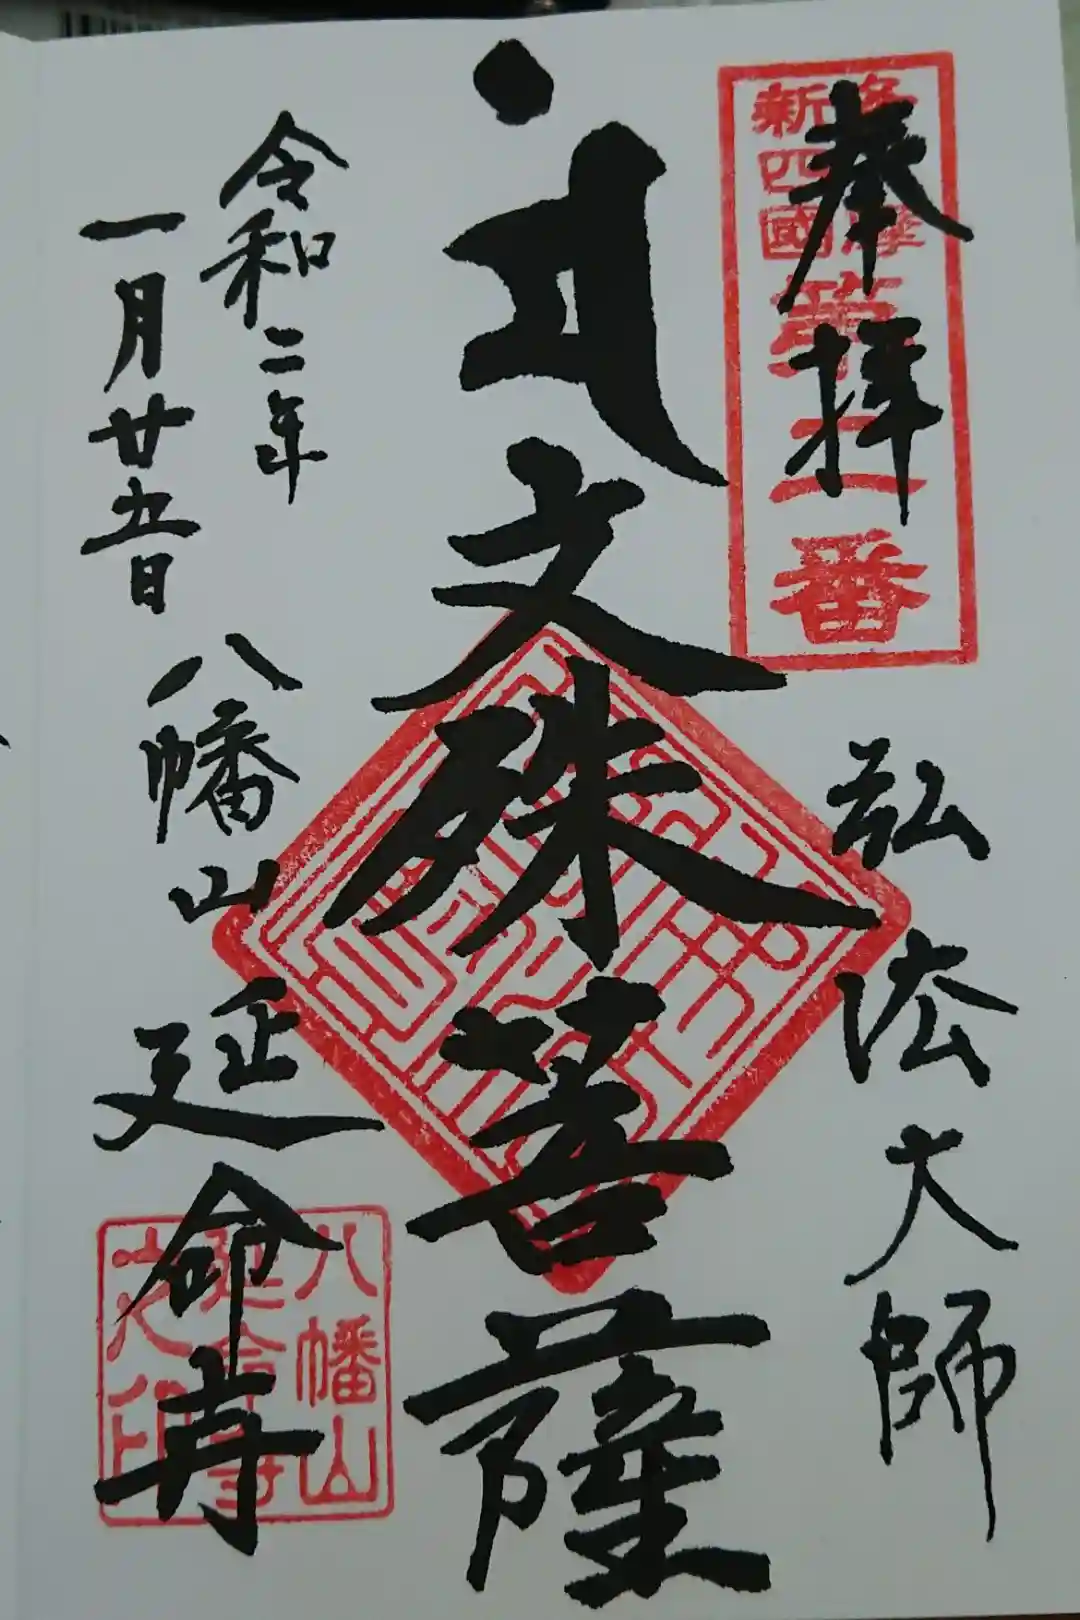 奉拝
多摩
新四國
第二番
弘法大師
文殊菩薩
令和二年
一月廿五日
八幡山
延命寺
八幡山
延命寺
之印